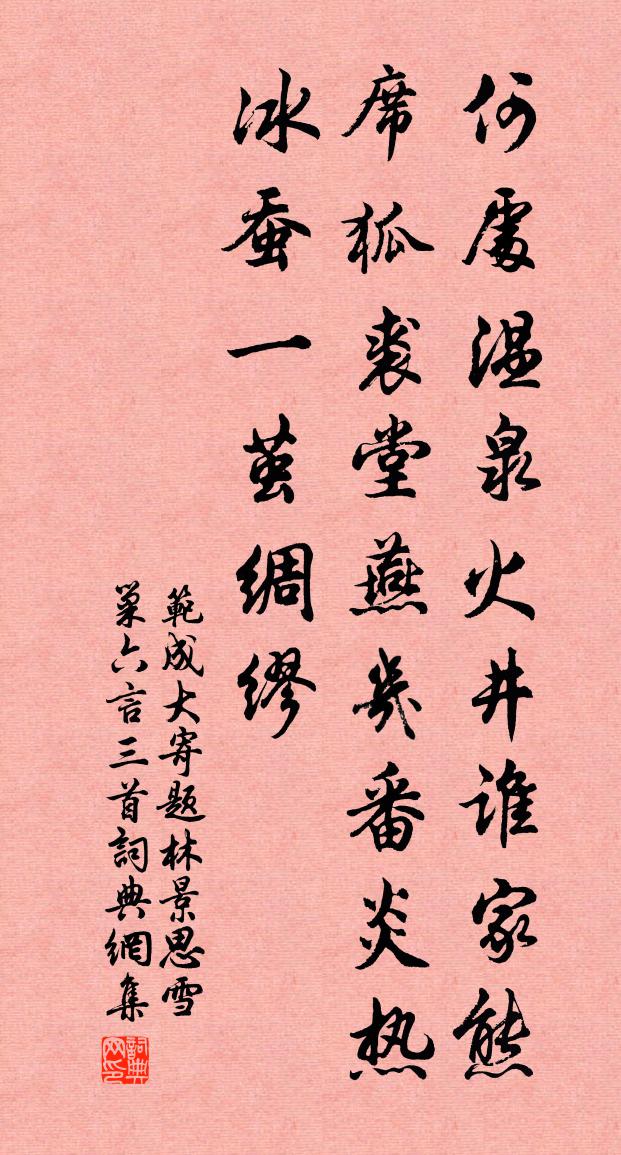 何處温泉火井谁家熊
席狐裘堂燕幾番炎热
冰蚕一茧綢缪
範成大寄題林景思雪
巢六言三首詞典網集
詞典网印